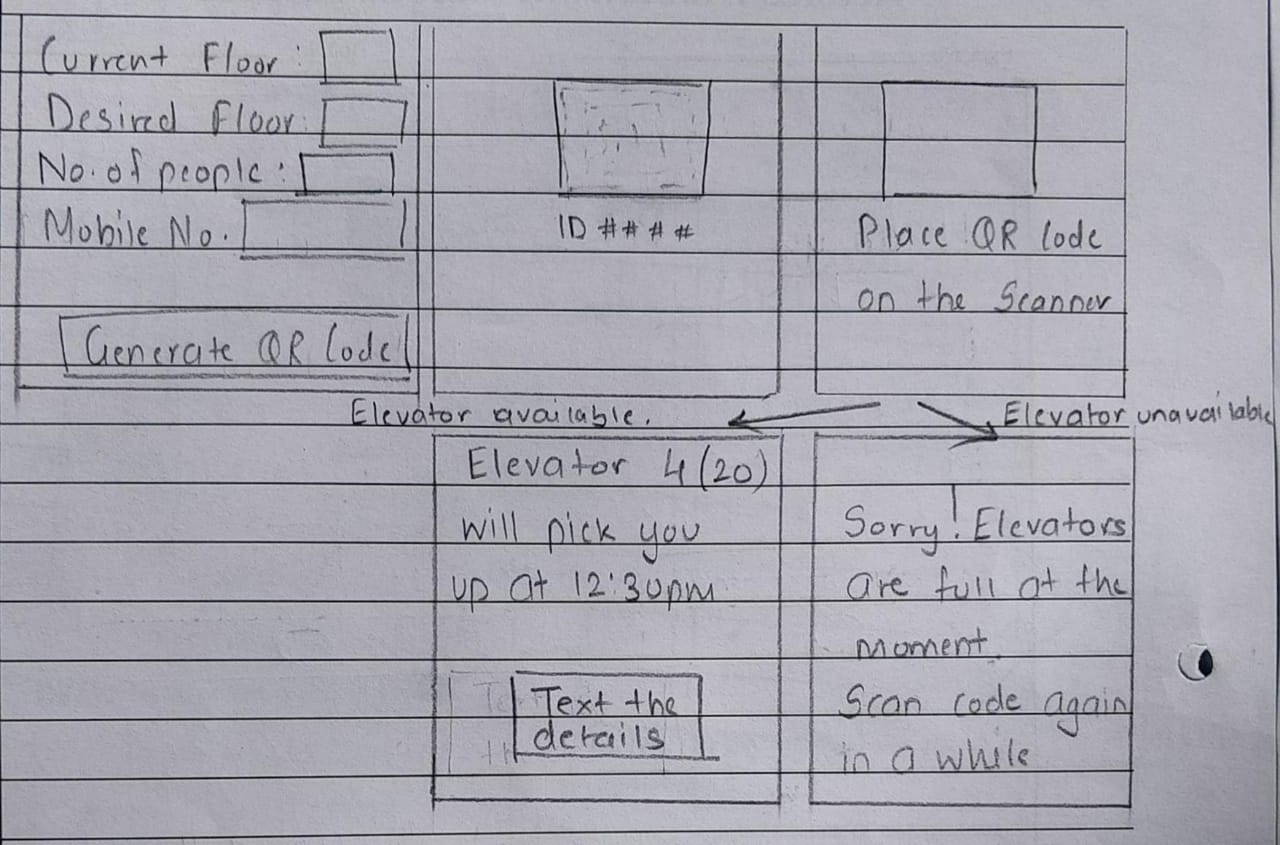 Current Floor:
Desired Floor:
No. of people:
Mobile No.
Generate QR Code
ID ####
Place QR Code
on the Scanner
Elevator available.
Elevator unavailable
Elevator 4 (20)
will pick you
up at 12:30pm
Text the
details
Sorry! Elevators
are full at the
moment.
Scan code again
in a while